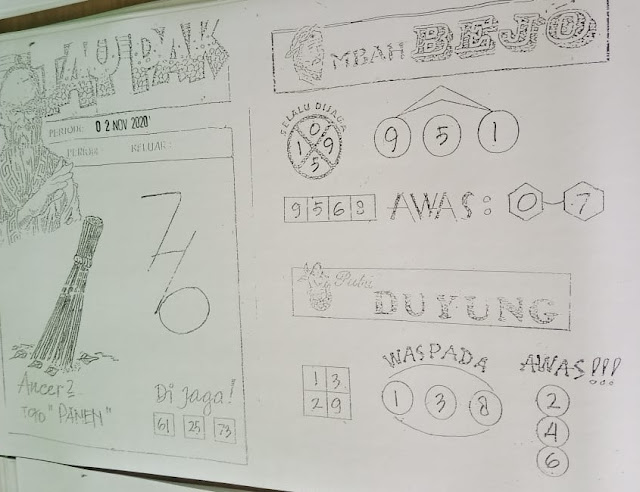 PERIODE: 02 NOV 2020
PERIODE: KELUAR:
7
6
Ancer2
TGO "PANEN"
Di jaga!
61 25 73
MBAH BEJO
SELALU DIJAGA
0
1 9
5
9 5 1
9 5 6 8
AWAS: 0 7
Putri
DUYUNG
WASPADA
1 3
2 9
1 3 8
AWAS!!!
2
4
6